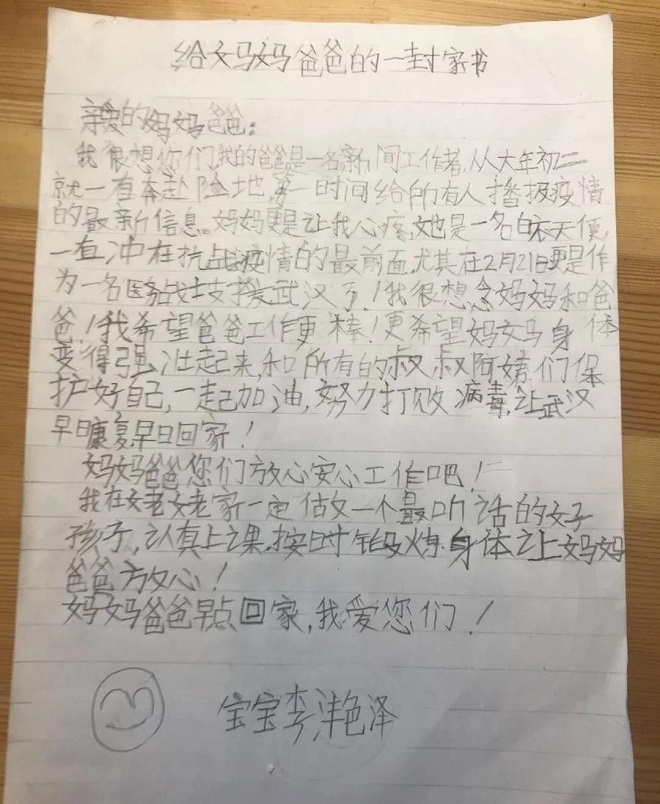 给妈妈爸爸的一封家书
亲爱的妈妈爸爸：
我很想您们,我的爸爸是一名新闻工作者,从大年初二
就一直奔赴险地,第一时间给所有人播报疫情
的最新信息。妈妈更是让我心疼,她是一名白衣天使,
一直冲在抗战疫情的最前面,尤其在2月21日更是作
为一名医务战士支援武汉了！我很想念妈妈和爸
爸！我希望爸爸工作更棒！更希望妈妈身体
变得强壮起来,和所有的叔叔阿姨们保
护好自己,一起加油,努力打败病毒,让武汉
早日康复,早日回家！
妈妈爸爸您们放心安心工作吧！
我在姥姥家一定做一个最听话的好
孩子,认真上课,按时锻炼身体让妈妈
爸爸放心！
妈妈爸爸早点回家,我爱您们！
宝宝李泽